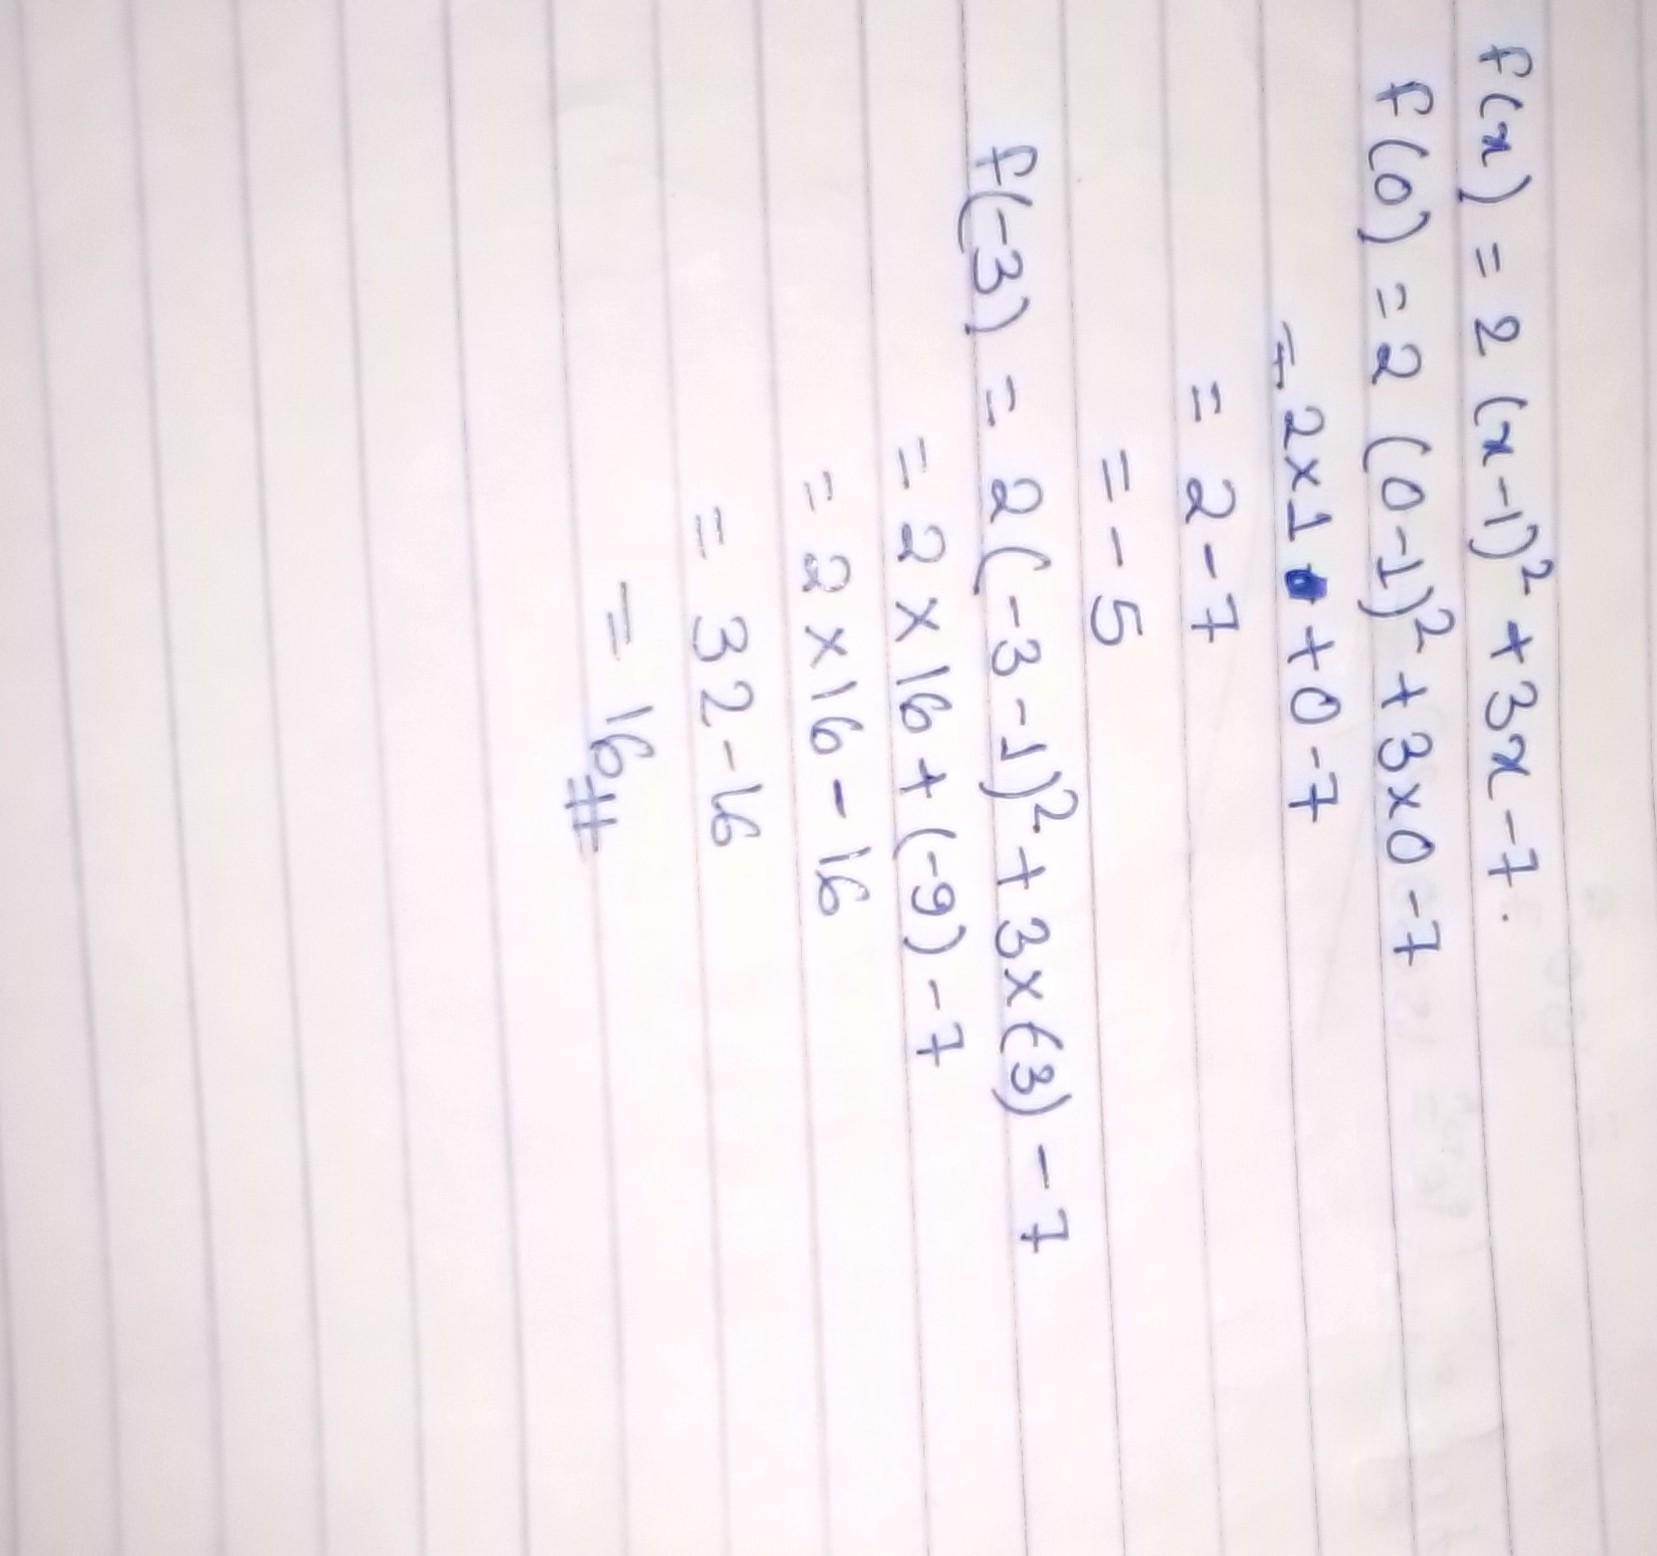 f(x) = 2 (x-1)² + 3x - 7.
f(0) = 2 (0-1)² + 3×0 - 7
= 2×1 + 0 - 7
= 2 - 7
= - 5
f(-3) = 2(-3-1)² + 3×(-3) - 7
= 2 × 16 + (-9) - 7
= 2 × 16 - 16
= 32 - 16
= 16#